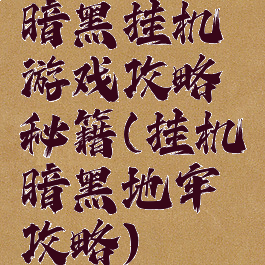 暗黑挂机
游戏攻略
秘籍(挂机
暗黑地牢
攻略)